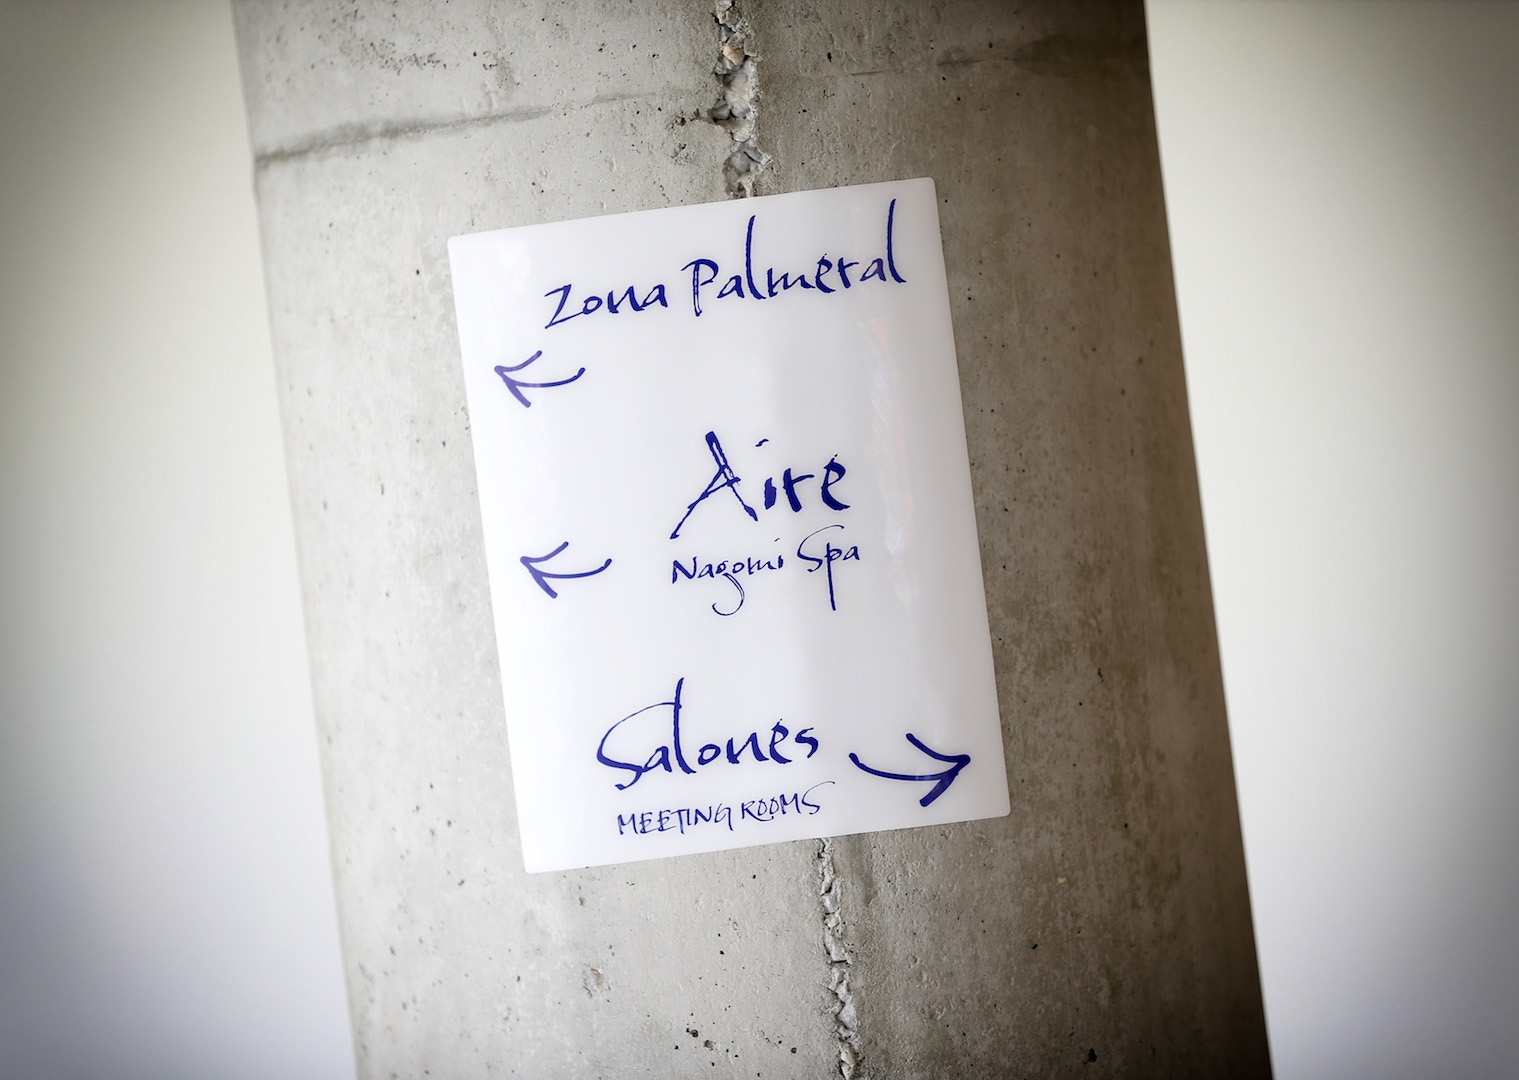 Zona Palmeral
Aire
Nagomi Spa
Salones
MEETING ROOMS